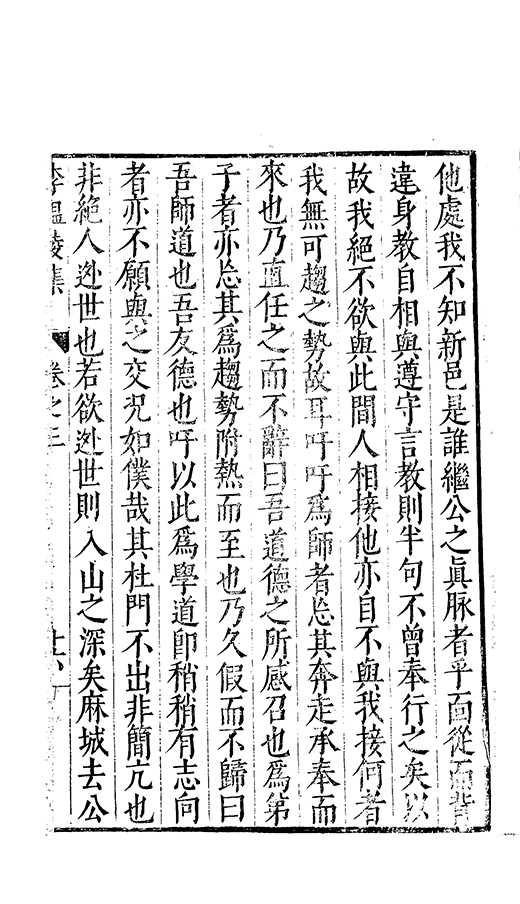 他處我不知新邑是誰繼公之眞脉者乎面從而背
違身教自相與遵守言教則半句不曾奉行之矣以
故我絕不欲與此間人相接他亦自不與我接何者
我無可趨之勢故耳吁吁爲師者忘其奔走承奉而
來也乃直任之而不辭曰吾道德之所感召也爲弟
子者亦忘其爲趨勢附熱而至也乃久假而不歸曰
吾師道也吾友德也吁以此爲學道卽稍稍有志向
者亦不願與之交況如僕哉其杜門不出非簡亢也
非絕人逊世也若欲逊世則入山之深矣麻城去公
李溫陵集 卷之三